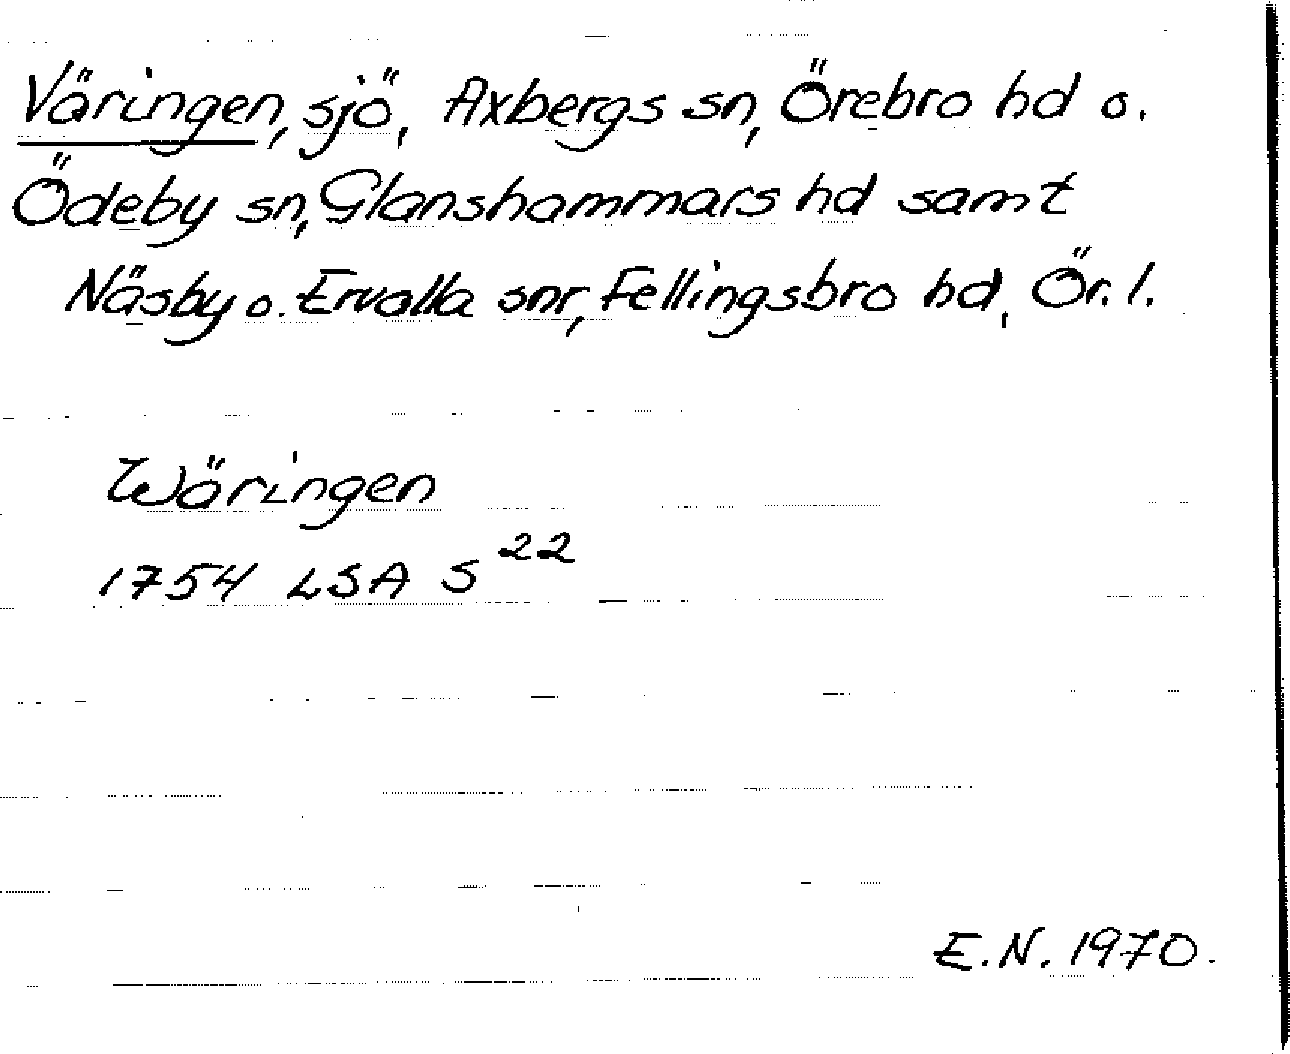 Väringen, sjö, Axbergs sn, Örebro hd o.
Ödeby sn, Glanshammars hd samt
Näsby o. Ervalla snr, Fellingsbro hd, Ör. l.
Wäringen
1754 LSA S 22
E.N. 1970.